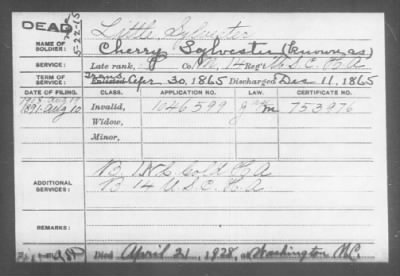 DEAD
5-22-15
Little, Sylvester
NAME OF SOLDIER: Cherry Sylvester (Known as)
SERVICE: Late rank, P Co. M, 14 Reg't U.S.C.H.A
TERM OF SERVICE: Trans Enlisted Apr 30, 1865 Discharged Dec 11, 1865
DATE OF FILING. CLASS. APPLICATION NO. LAW. CERTIFICATE NO.
1891-Aug 10 Invalid, 1046599 753976
Widow,
Minor,
ADDITIONAL SERVICES: B. 1 N.C. Cold H.A
B 14 U.S.C.H.A
REMARKS:
Died April 21, 1928, at Washington N.C.